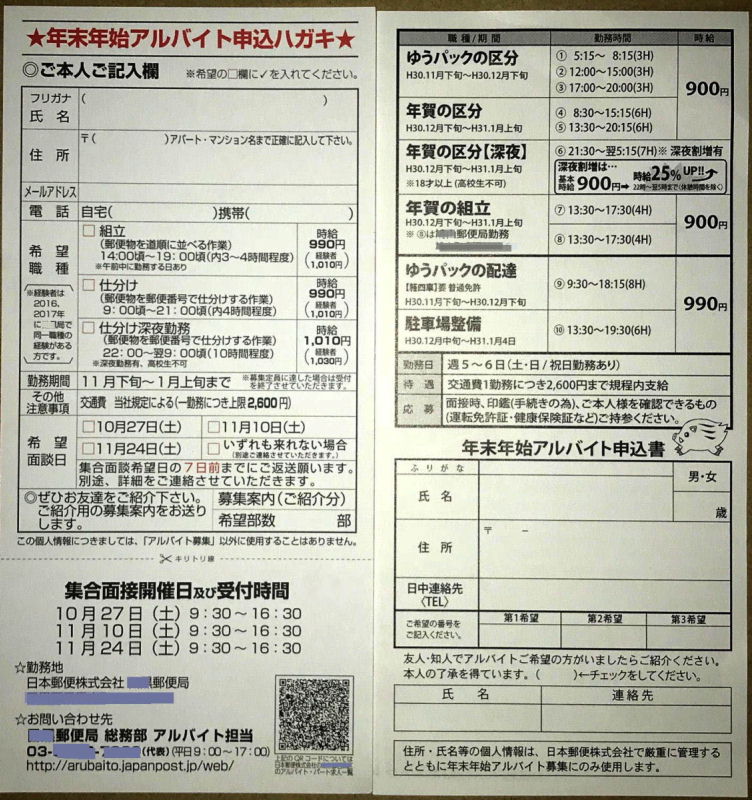 ★年末年始アルバイト申込ハガキ★
◎ご本人ご記入欄 ※希望の□欄に✓を入れてください。
フリガナ ( )
氏名
住所 〒( )アパート・マンション名まで正確に記入して下さい。
メールアドレス
電話 自宅( )携帯( )
希望職種
※経験者は
2016、
2017年
に 局で
同一職種の
経験がある
方です。
□組立
(郵便物を道順に並べる作業)
14:00頃~19:00頃(内3~4時間程度)
※午前中に勤務する日あり
時給
990円
(経験者 1,010円)
□仕分け
(郵便物を郵便番号で仕分する作業)
9:00頃~21:00頃(内4時間程度)
時給
990円
(経験者 1,010円)
□仕分け深夜勤務
(郵便物を郵便番号で仕分する作業)
22:00~翌9:00頃(10時間程度)
※深夜勤務有、高校生不可
時給
1,010円
(経験者 1,030円)
勤務期間 11月下旬~1月上旬まで ※募集定員に達した場合は受付を終了させていただきます。
その他注意事項 交通費 当社規定による(一勤務につき上限2,600円)
希望面談日
□10月27日(土) □11月10日(土)
□11月24日(土) □いずれも来れない場合
(別途ご連絡させていただきます。)
集合面談希望日の7日前までにご返送願います。
別途、詳細をご連絡させていただきます。
◎ぜひお友達をご紹介下さい。
ご紹介用の募集案内をお送りします。
募集案内(ご紹介分)
希望部数 部
この個人情報につきましては、「アルバイト募集」以外に使用することはありません。
キリトリ線
集合面接開催日及び受付時間
10月27日(土)9:30~16:30
11月10日(土)9:30~16:30
11月24日(土)9:30~16:30
☆勤務地
日本郵便株式会社 郵便局
☆お問い合わせ先
郵便局 総務部 アルバイト担当
03- (代表)(平日9:00~17:00)
http://arubaito.japanpost.jp/web/
上記のQRコードについては
日本郵便株式会社の
のアルバイト・パート求人一覧
職種/期間 勤務時間 時給
ゆうパックの区分
H30.11月下旬~H30.12月下旬
① 5:15~ 8:15(3H)
② 12:00~15:00(3H)
③ 17:00~20:00(3H)
900円
年賀の区分
H30.12月下旬~H31.1月上旬
④ 8:30~15:15(6H)
⑤ 13:30~20:15(6H)
年賀の区分【深夜】
H30.12月下旬~H31.1月上旬
※18才以上(高校生不可)
⑥ 21:30~翌5:15(7H)※ 深夜割増有
深夜割増は…
基本時給900円➡ 時給25%UP!!
22時~翌5時まで(休憩時間を除く)
年賀の組立
H30.12月下旬~H31.1月上旬
※⑧は 郵便局勤務
⑦ 13:30~17:30(4H)
⑧ 13:30~17:30(4H)
900円
ゆうパックの配達
【軽四車】要 普通免許
H30.11月下旬~H30.12月下旬
⑨ 9:30~18:15(8H)
990円
駐車場整備
H30.12月中旬~H31.1月4日
⑩ 13:30~19:30(6H)
勤務日 週5~6日(土・日/祝日勤務あり)
待遇 交通費1勤務につき2,600円まで規程内支給
応募 面接時、印鑑(手続きの為)、ご本人様を確認できるもの
(運転免許証・健康保険証など)ご持参ください。
年末年始アルバイト申込書
ふりがな
氏名
男・女
歳
住所 〒 -
日中連絡先
〈TEL〉
ご希望の番号を
ご記入ください。
第1希望 第2希望 第3希望
友人・知人でアルバイトご希望の方がいましたらご紹介ください。
本人の了承を得ています。( )←チェックをしてください。
氏名 連絡先
住所・氏名等の個人情報は、日本郵便株式会社で厳重に管理する
とともに年末年始アルバイト募集にのみ使用します。